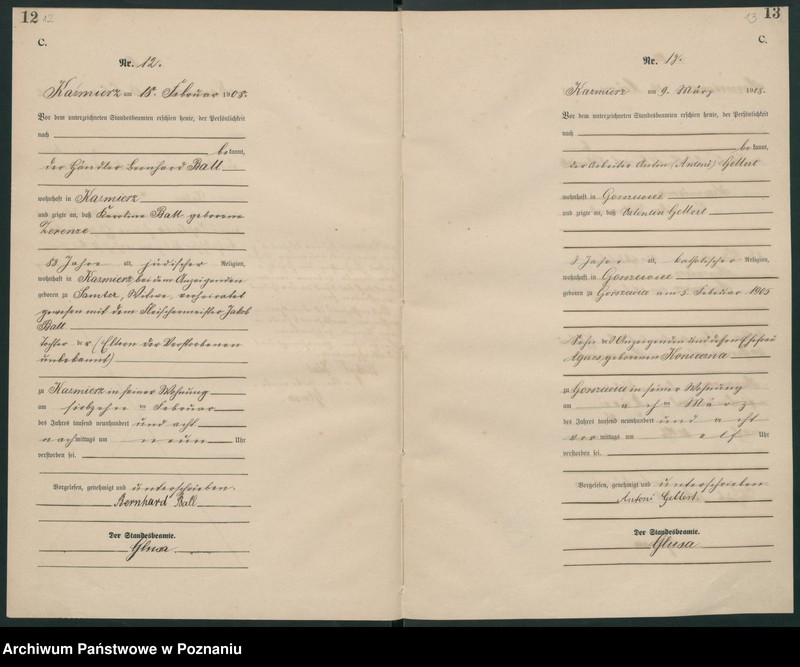 12 12
C.
Nr. 12.
Kazmierz am 18. Februar 1908.
Vor dem unterzeichneten Standesbeamten erschien heute, der Persönlichkeit
nach
bekannt,
der Händler Bernhard Ball
wohnhaft in Kazmierz
und zeigte an, daß Karoline Ball geborene
Lorenze
83 Jahre alt, jüdischer Religion,
wohnhaft in Kazmierz bei dem Anzeigenden
geboren zu Samter, Witwe, verheiratet
gewesen mit dem Fleischermeister Jakob
Ball
Tochter der (Eltern der Verstorbenen
unbekannt)
zu Kazmierz in seiner Wohnung
am siebzehn ten Februar
des Jahres tausend neunhundert und acht
nachmittags um neun Uhr
verstorben sei.
Vorgelesen, genehmigt und unterschrieben.
Bernhard Ball
Der Standesbeamte.
Glusa
13 13
C.
Nr. 13.
Kazmierz am 9. März 1908.
Vor dem unterzeichneten Standesbeamten erschien heute, der Persönlichkeit
nach
bekannt,
der Arbeiter Anton (Antoni) Gellert
wohnhaft in
und zeigte an, daß Valentin Gellert
3 Jahre alt, katholischer Religion,
wohnhaft in
geboren zu am 5. Februar 1905
Sohn des Anzeigenden und dessen Ehefrau
Agnes, geborenen
zu in seiner Wohnung
am acht ten März
des Jahres tausend neunhundert und acht
vormittags um elf Uhr
verstorben sei.
Vorgelesen, genehmigt und unterschrieben
Antoni Gellert
Der Standesbeamte.
Glusa
Archiwum Państwowe w Poznaniu